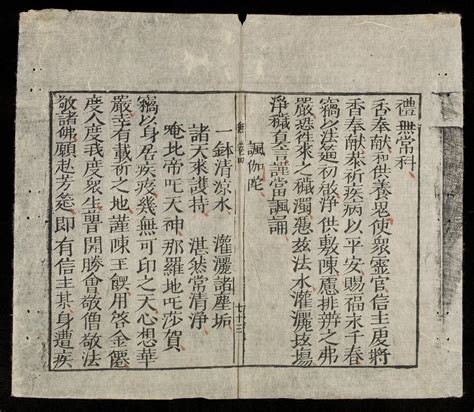 禮無常科
香奉献和供養鬼使衆霊官信主虔將
香奉献奉祈疾病以平安賜福末千春
窃以法筵初啟淨供敷陳應排辨之弗
嚴恐徃來之穢濁憑兹法水灌灑坛塲
淨穢真言謹當諷誦
諷伽陀
七十三
一鉢清凉水 灌灑諸塵垢
諸天來護持 湛然常清淨
唵此帝吒天神那羅地吒莎賀
窃以身居疾疚幾無可印之天心想華
嚴幸有載祈之地謹陳王饌用答金僊
度人度我度衆生普開勝會敬僧敬法
敬諸佛願赴芳筵即有信主某身遭疾